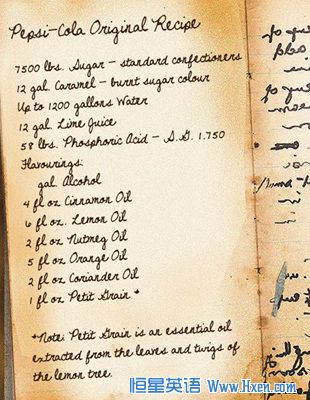 Pepsi-Cola Original Recipe
7500 lbs. Sugar – standard confectioners
12 gal. Caramel – burnt sugar colour
Up to 1200 gallons Water
12 gal. Lime Juice
58 lbs. Phosphoric Acid – S.G. 1.750
Flavourings:
gal. Alcohol
4 fl oz Cinnamon Oil
6 fl oz. Lemon Oil
2 fl oz Nutmeg Oil
5 fl oz Orange Oil
2 fl oz Coriander Oil
1 fl oz Petit Grain *
*Note: Petit Grain is an essential oil
extracted from the leaves and twigs of
the lemon tree.
恒星英语 Www.Hxen.com